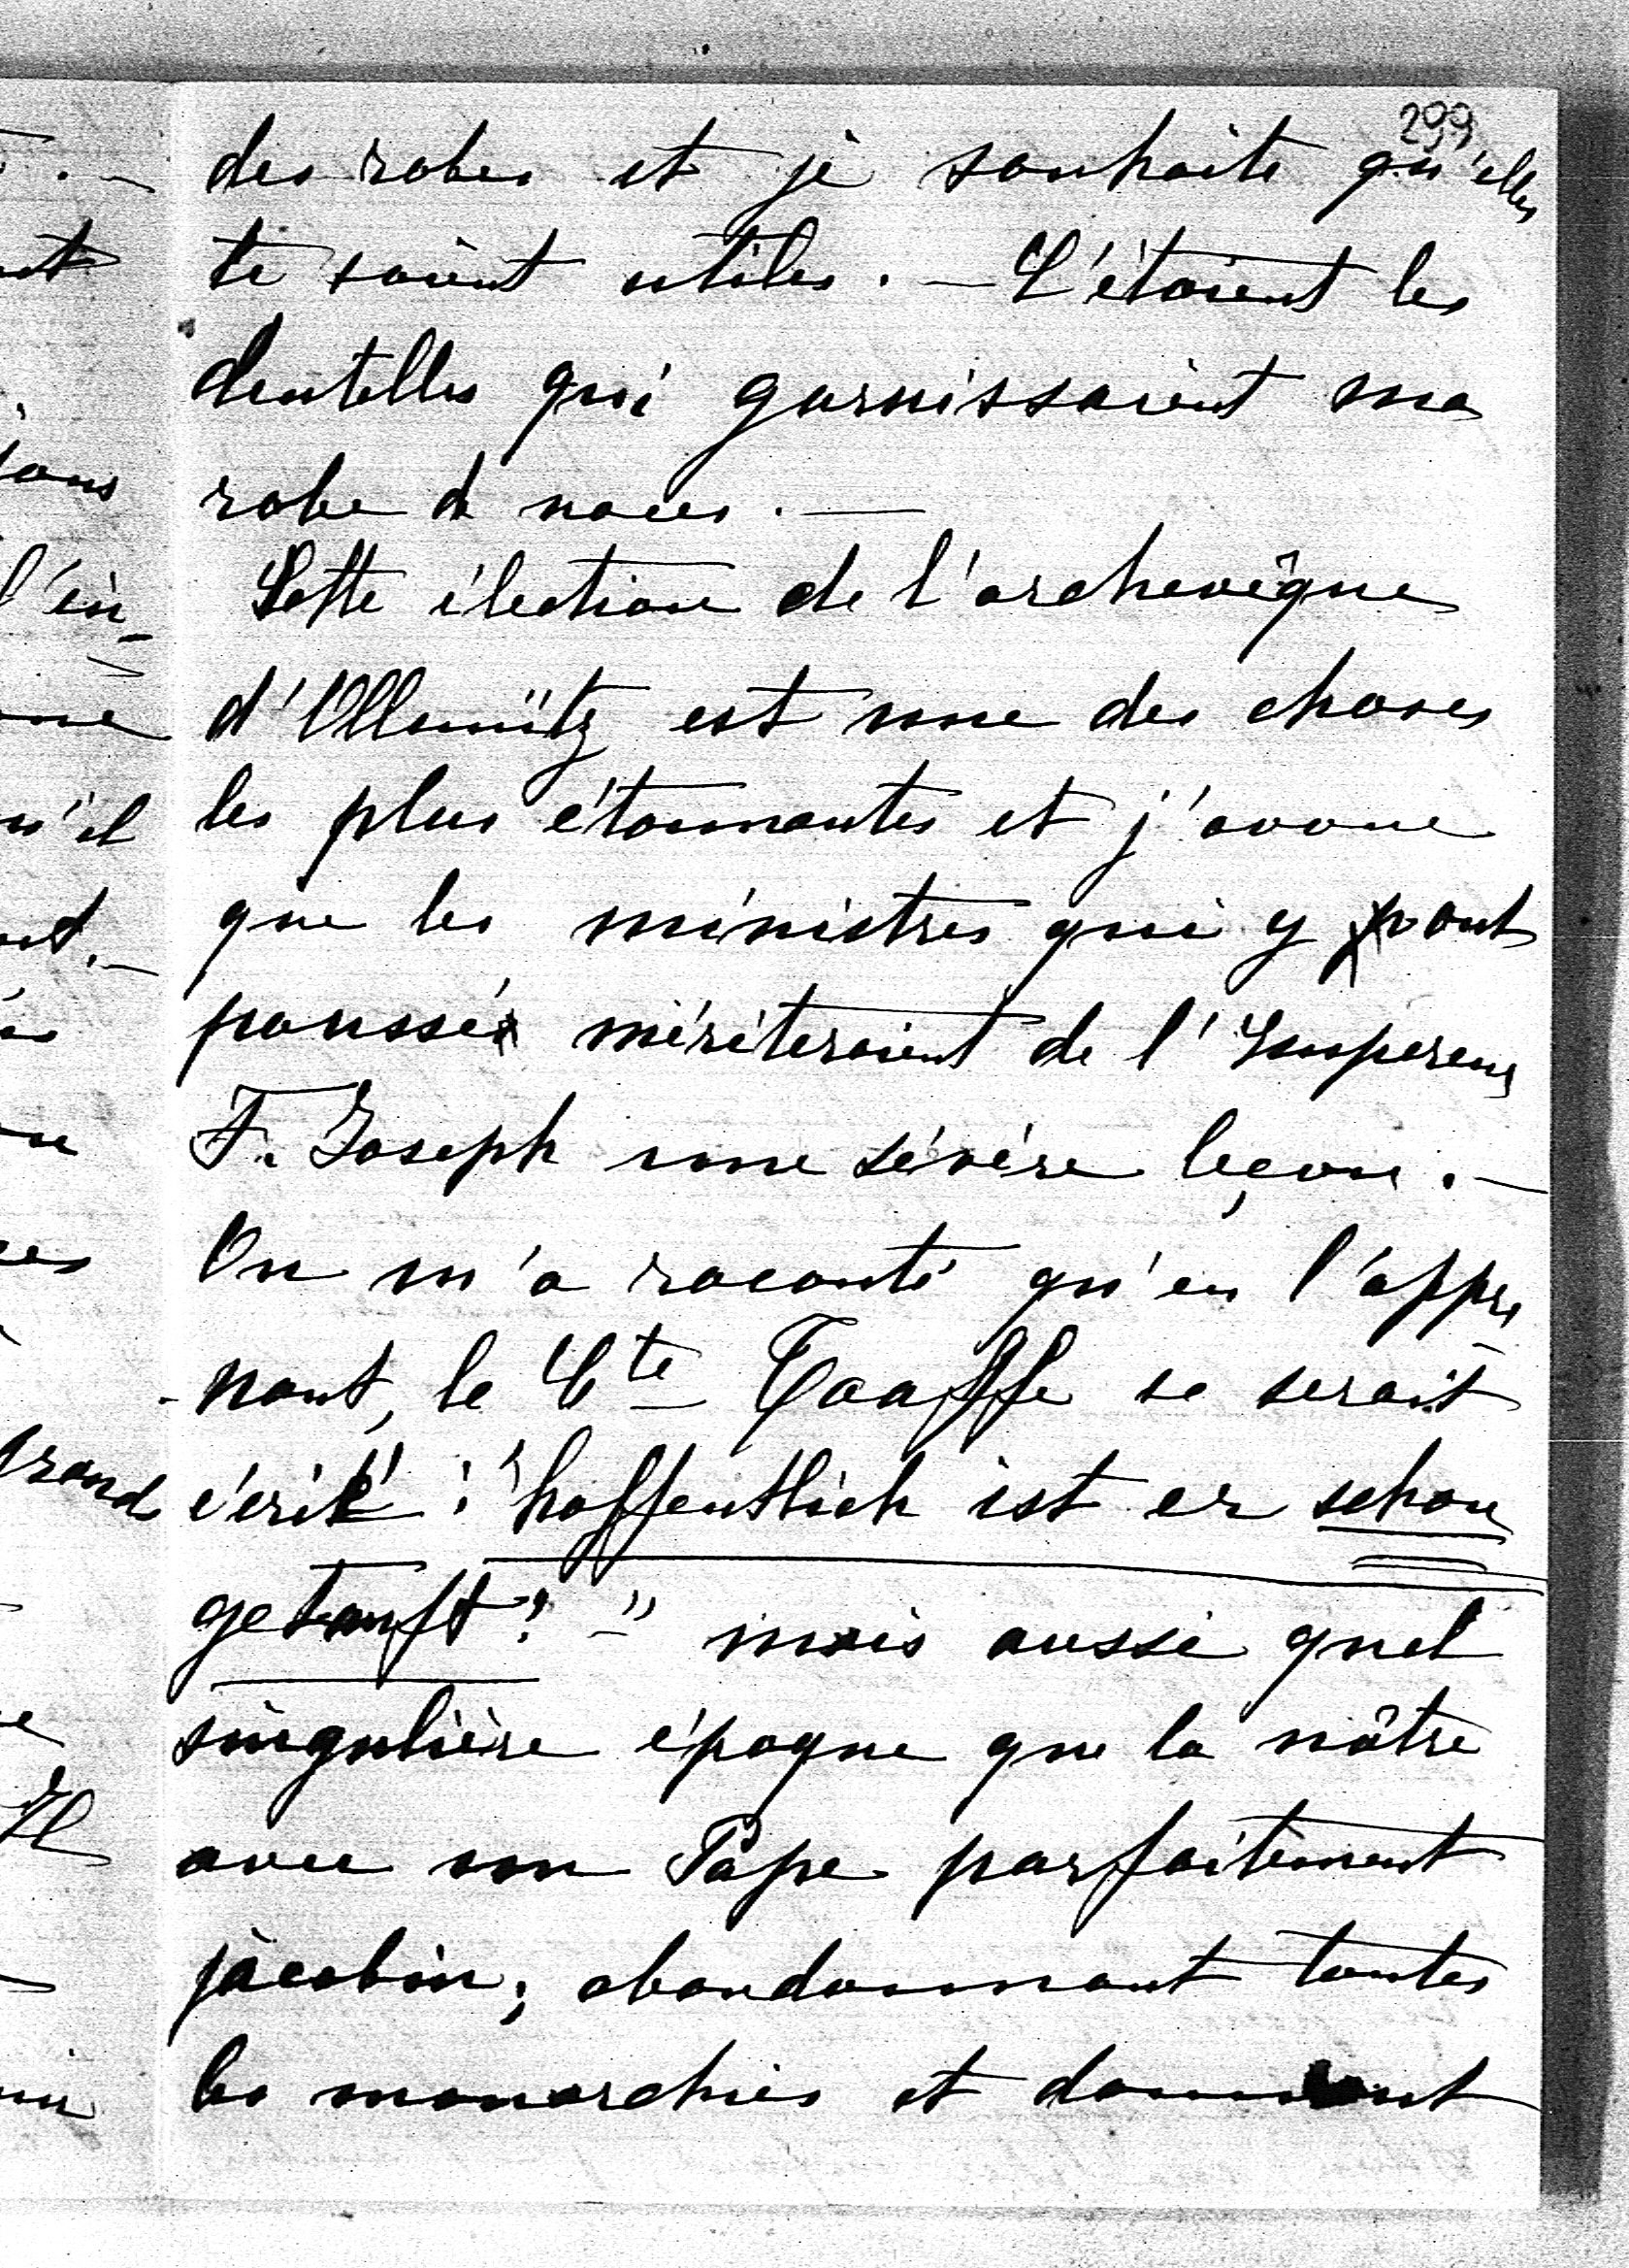 299
des robes et je souhaite qu'elles
te soient utiles. — C'étaient les
dentelles qui garnissaient ma
robe de noces. —
Cette élection de l'archevêque
d'Ollmütz est une des choses
les plus étonnantes et j'avoue
que les ministres qui y ont
poussé mériteraient de l'Empereur
F. Joseph une sévère leçon. —
On m'a raconté qu'en l'appre
nant, le Cte Taaffe se serait
écrié : "hoffentlich ist er schon
getauft! —" mais aussi quel
singulière époque que la nôtre
avec un Pape parfaitement
jacobin; abandonnant toutes
les monarchies et donnant